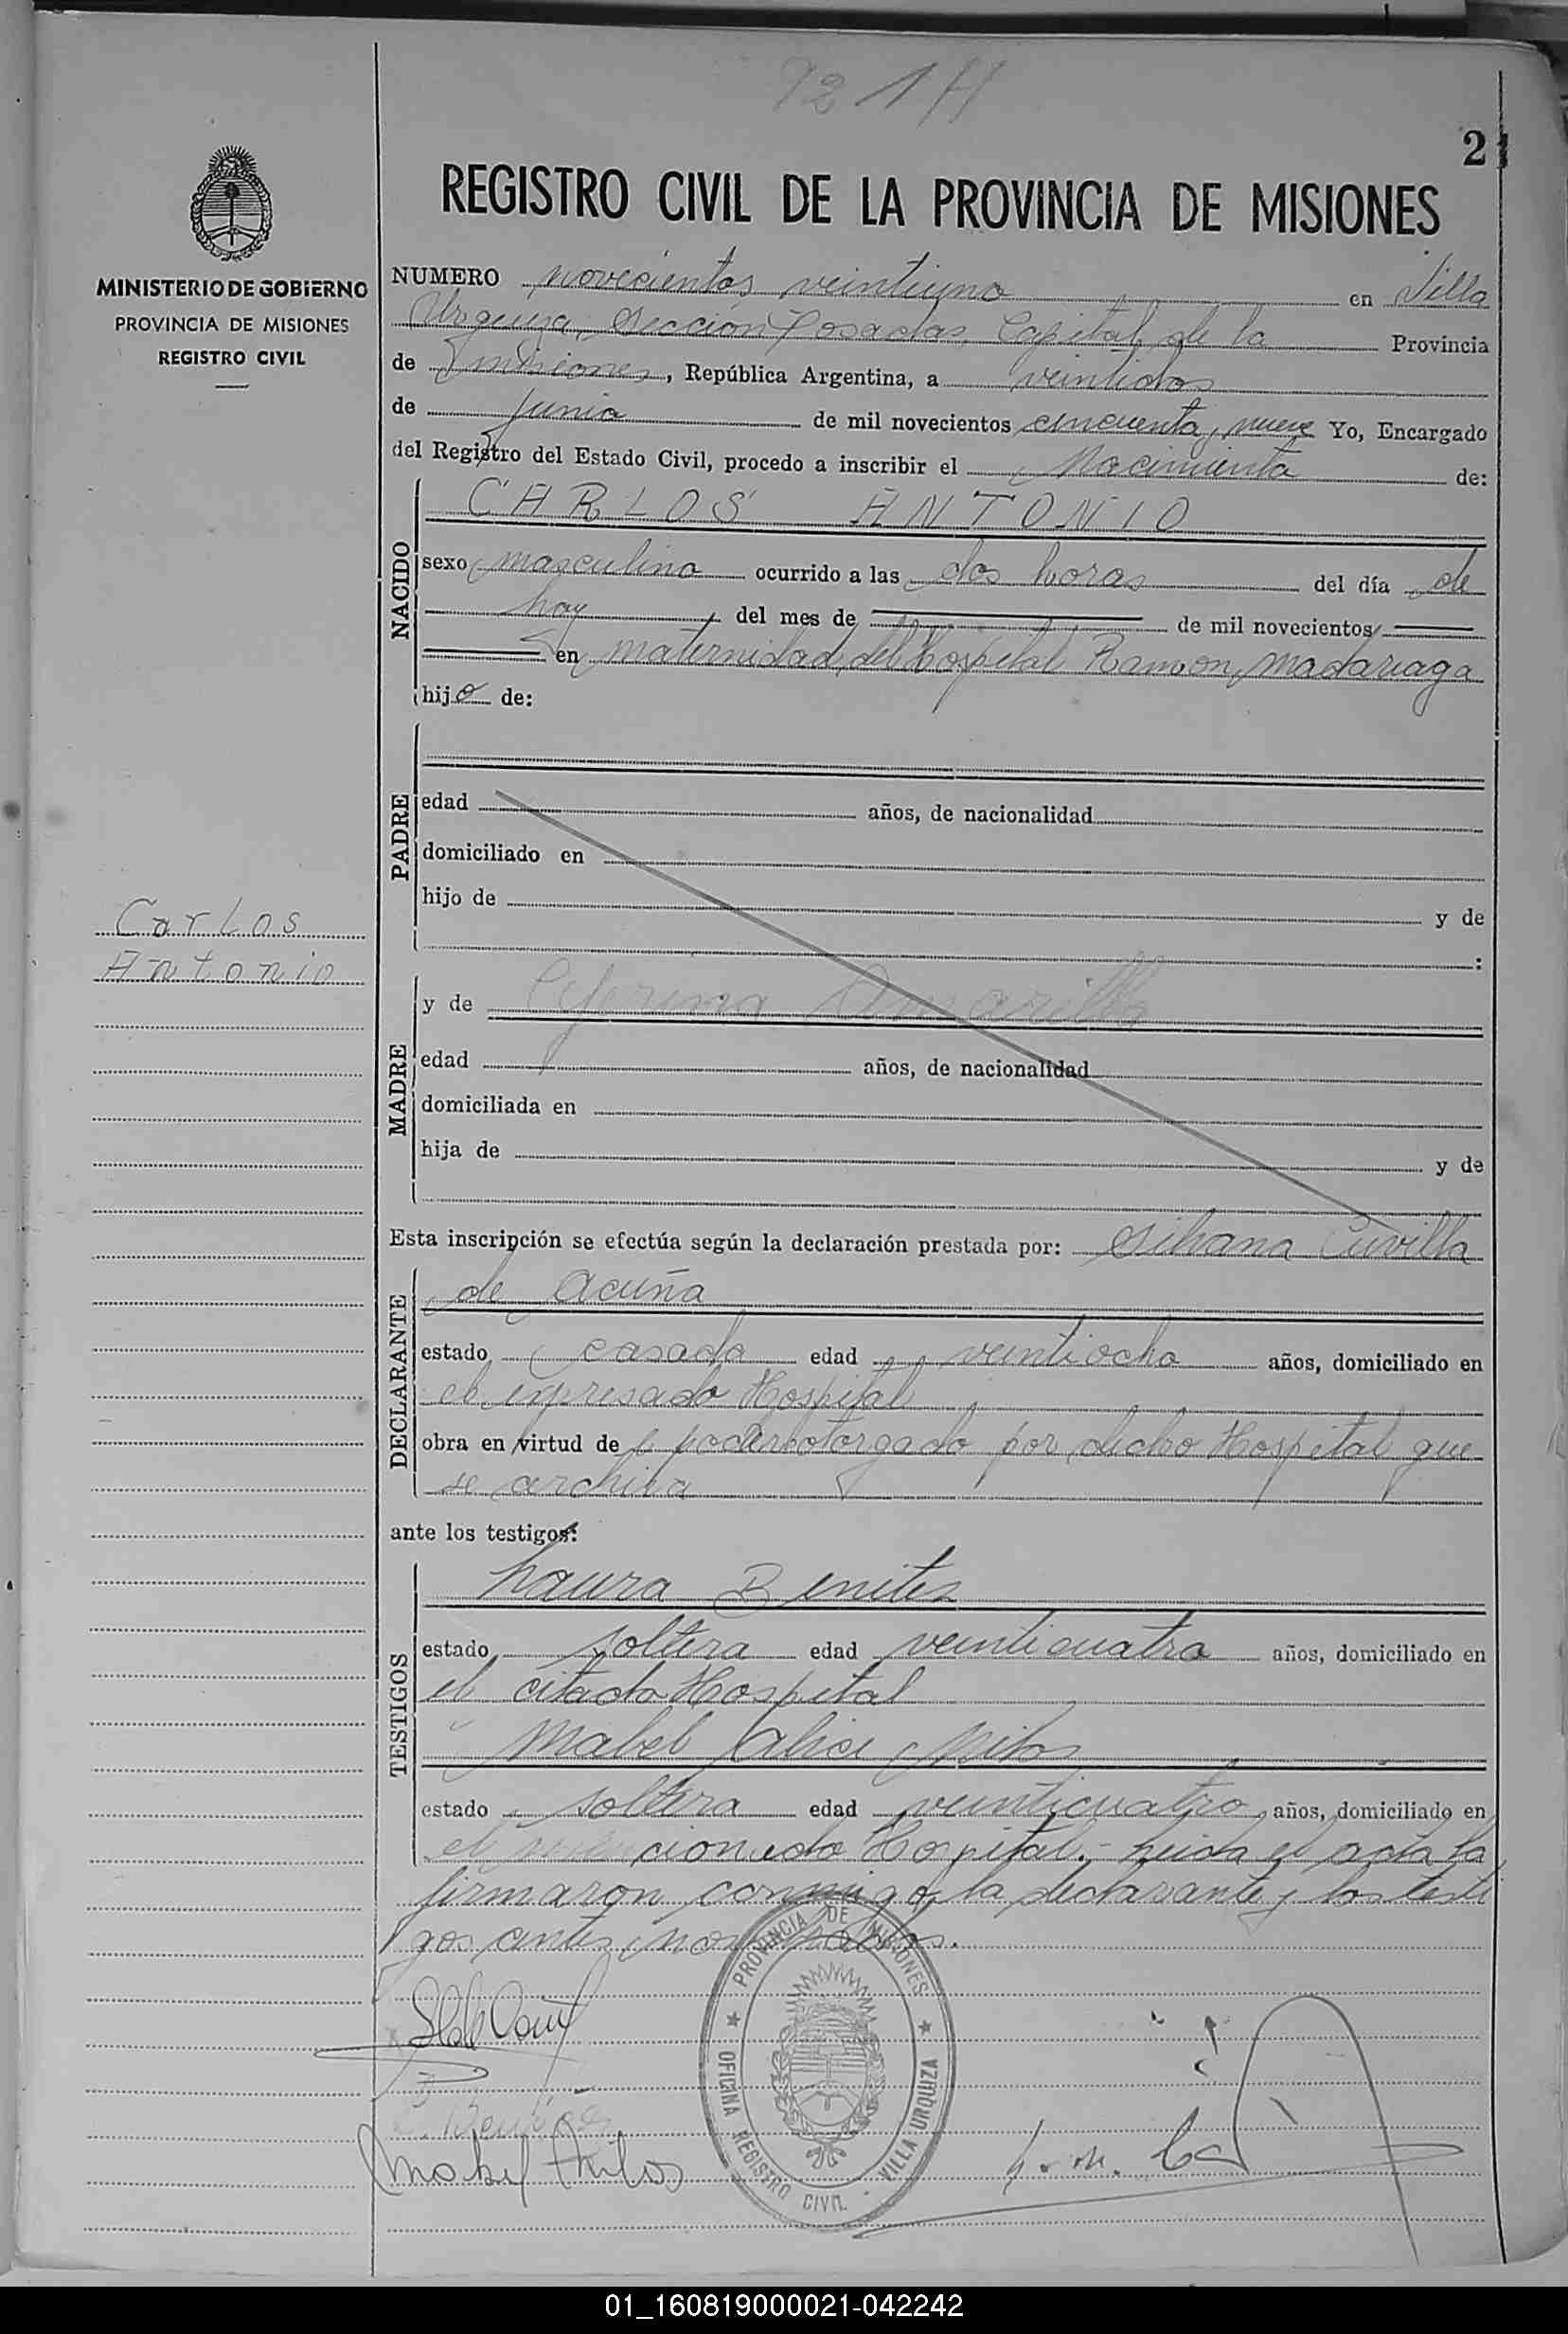 921 H
21
MINISTERIO DE GOBIERNO
PROVINCIA DE MISIONES
REGISTRO CIVIL
Carlos
Antonio
REGISTRO CIVIL DE LA PROVINCIA DE MISIONES
NUMERO novecientos veintiuno en Villa
Urquiza, Seccion Posadas, Capital de la Provincia
de Misiones, República Argentina, a veintidos
de junio de mil novecientos cincuenta, nueve Yo, Encargado
del Registro del Estado Civil, procedo a inscribir el Nacimiento de:
NACIDO
CARLOS ANTONIO
sexo masculino ocurrido a las dos horas del día de
hoy del mes de de mil novecientos
en maternidad del Hospital Ramon Madariaga
hijo de:
PADRE
edad años, de nacionalidad
domiciliado en
hijo de y de
:
MADRE
y de Ceferina Amarilla
edad años, de nacionalidad
domiciliada en
hija de y de
Esta inscripción se efectúa según la declaración prestada por:
DECLARANTE
de Acuña
estado casada edad veintiocho años, domiciliado en
el expresado Hospital
obra en virtud de poder otorgado por dicho Hospital que
se archiva
ante los testigos:
TESTIGOS
Laura Benitez
estado soltera edad veinticuatro años, domiciliado en
el citado Hospital
Mabel Alice
estado soltera edad veinticuatro años, domiciliado en
el mencionado Hospital.- Leida el acta la
firmaron conmigo, la declarante y los testi
gos antes nombrados.
PROVINCIA DE MISIONES
OFICINA REGISTRO CIVIL - VILLA URQUIZA
Mabel
01_160819000021-042242